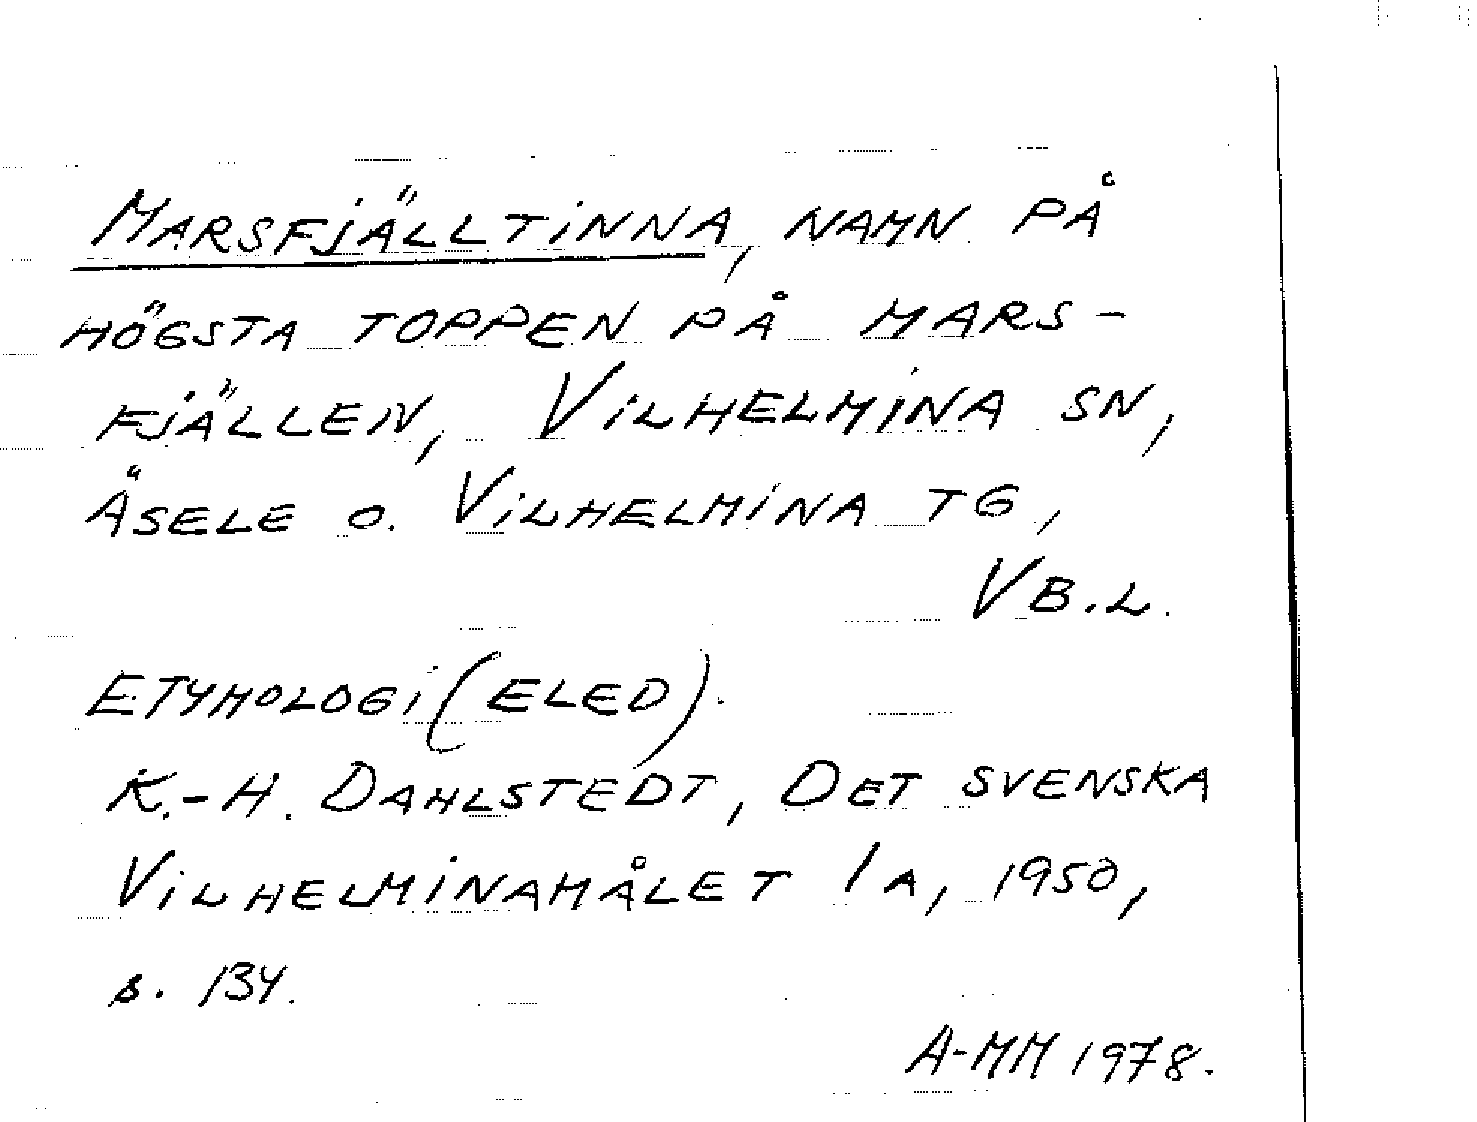 MARSFJÄLLTINNA, NAMN PÅ
HÖGSTA TOPPEN PÅ MARS-
FJÄLLEN, VILHELMINA SN,
ÅSELE O. VILHELMINA TG,
VB.L.
ETYMOLOGI (ELED).
K.-H. DAHLSTEDT, DET SVENSKA
VILHELMINAMÅLET 1A, 1950,
s. 134.
A-MM 1978.